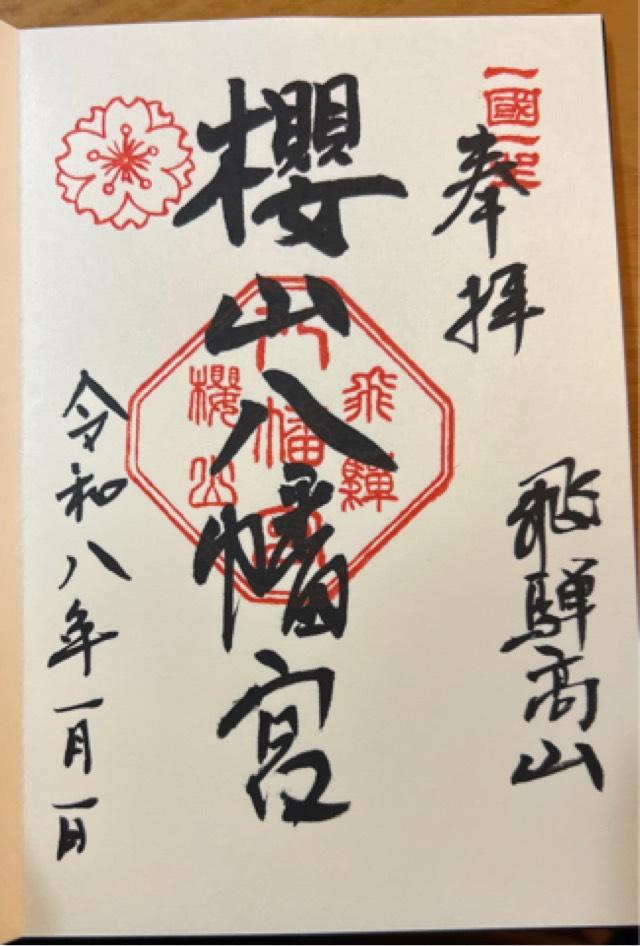 一國一社
奉拝
飛騨高山
櫻山八幡宮
飛騨
八幡宮
櫻山
令和八年一月一日